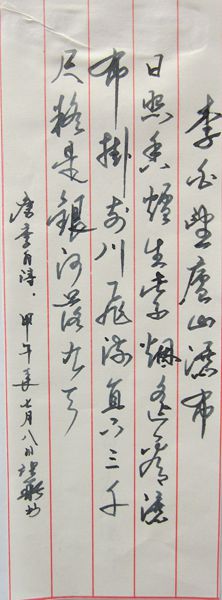 李白望廬山瀑布
日照香爐生紫烟遙看瀑
布掛前川飛流直下三千
尺疑是銀河落九天
唐李白詩。甲午年七月八日